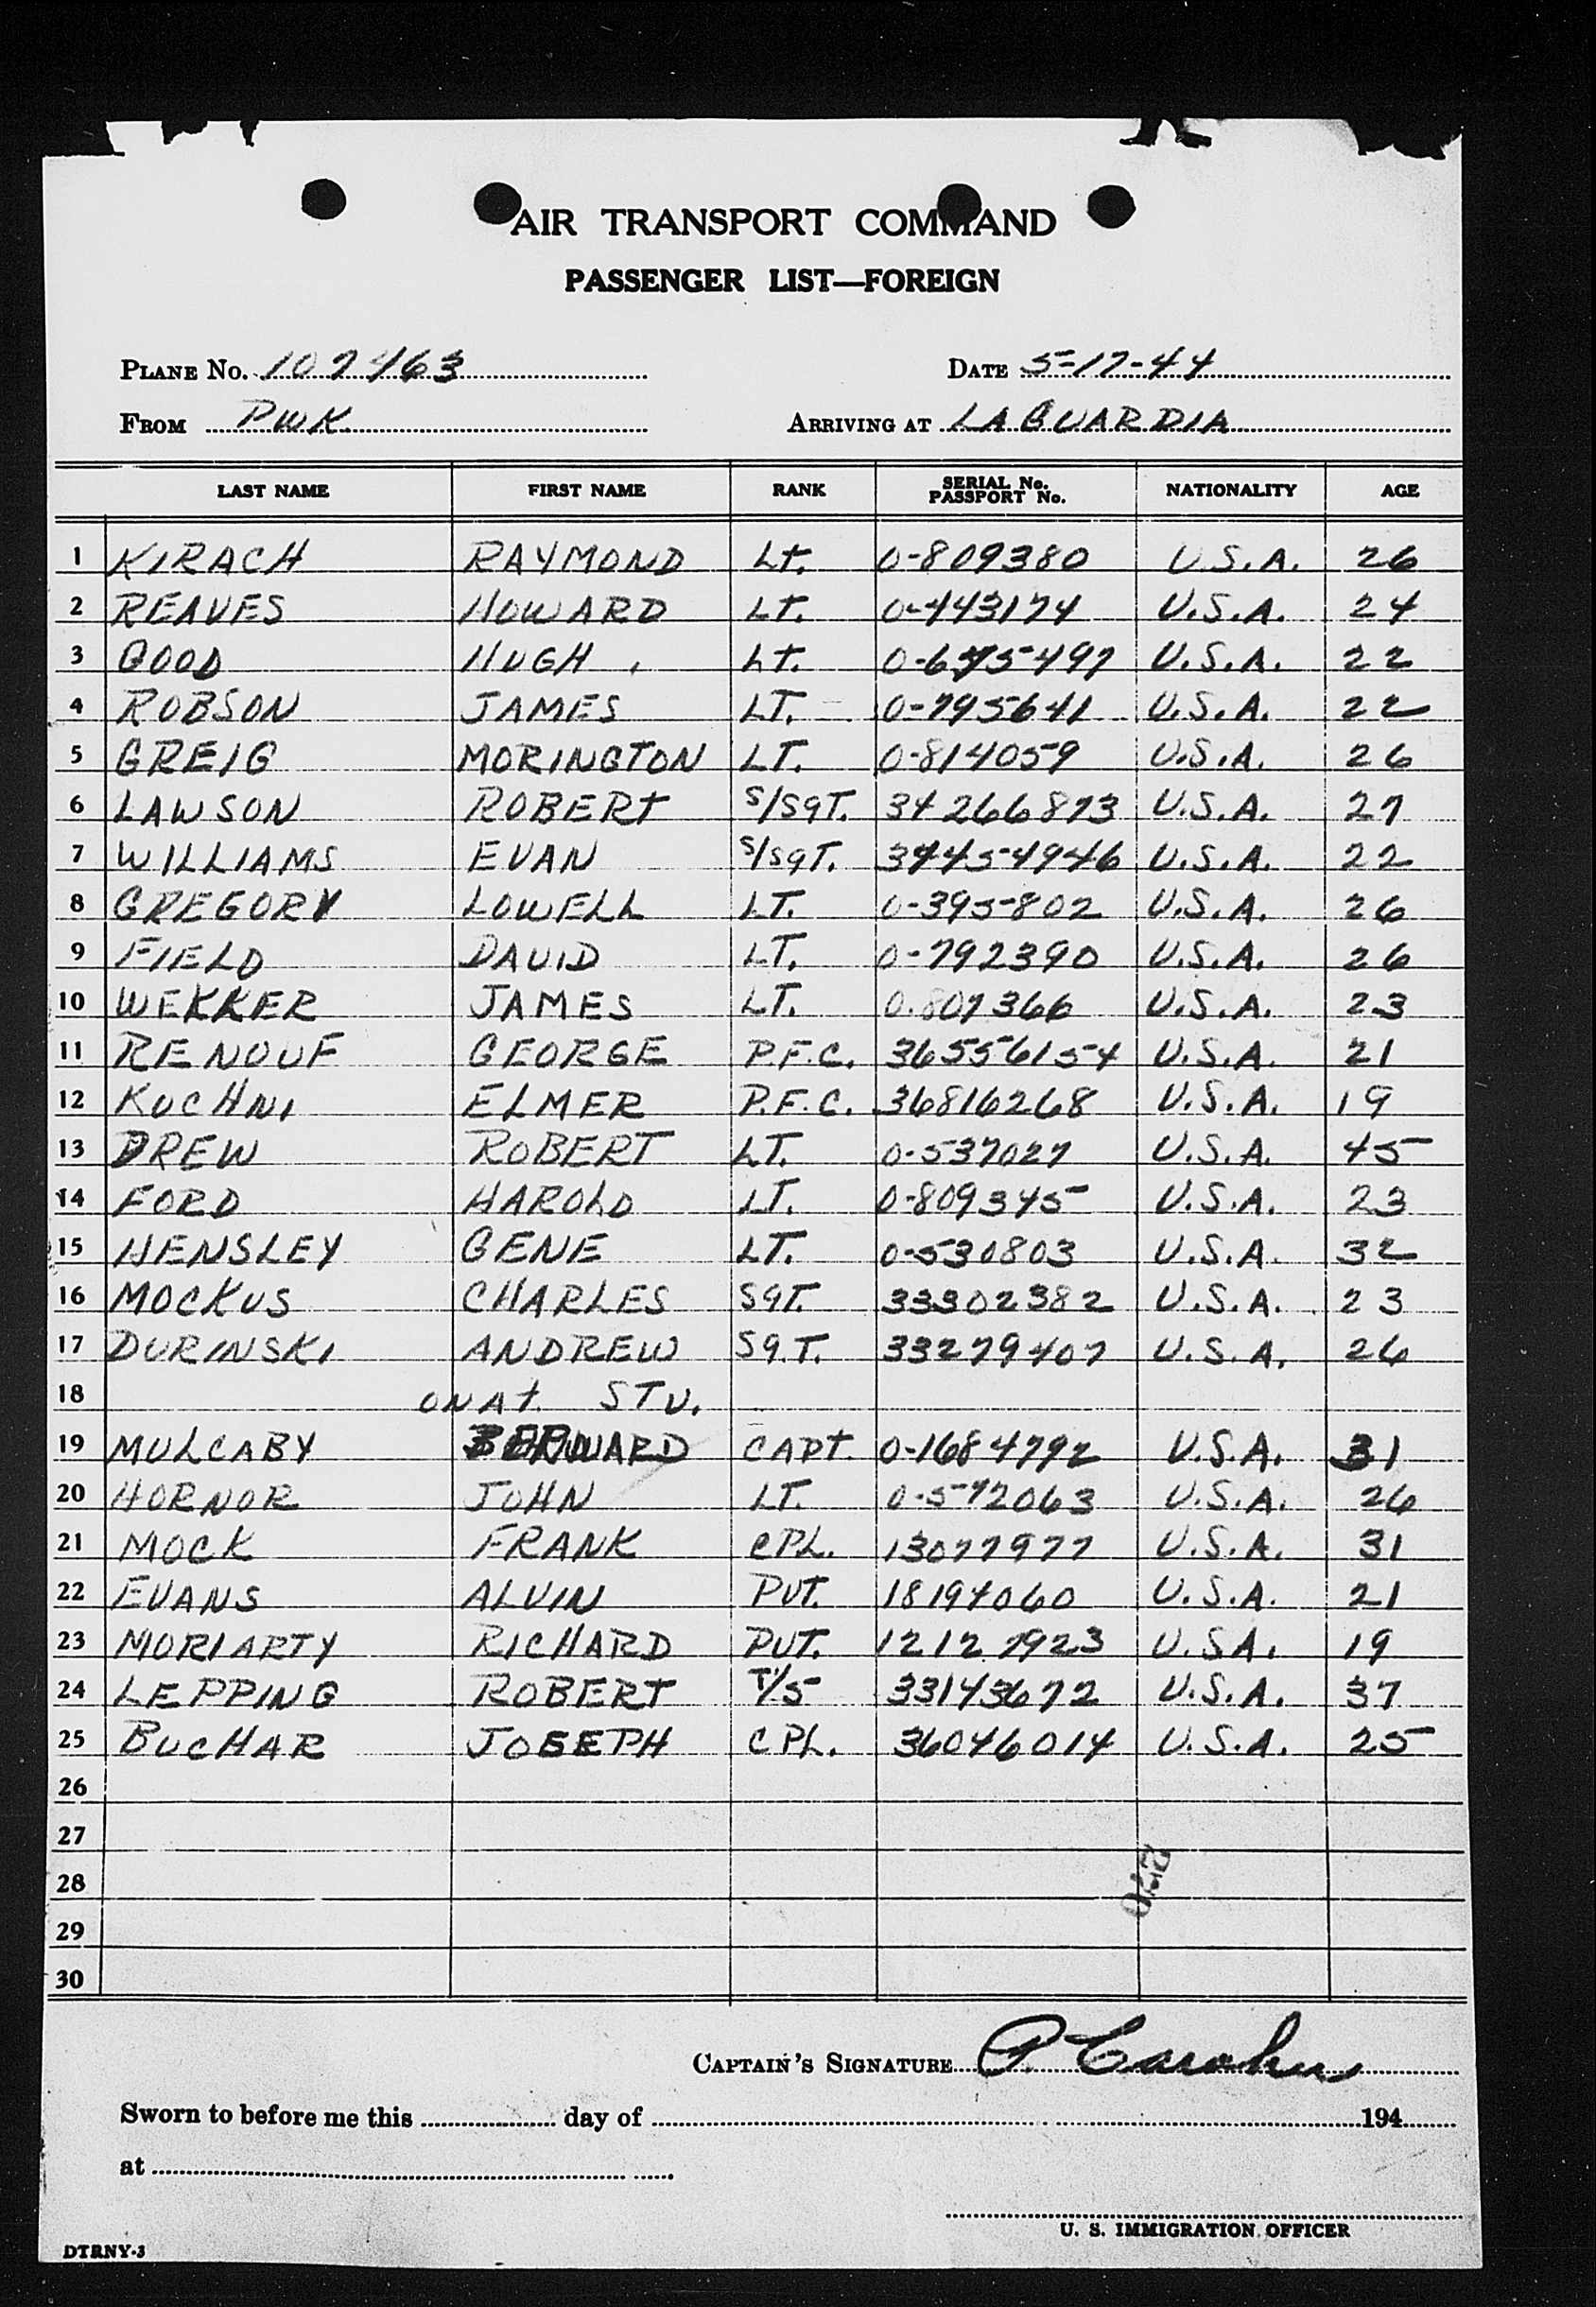 AIR TRANSPORT COMMAND
PASSENGER LIST—FOREIGN
PLANE No. 107463 DATE 5-17-44
FROM PWK ARRIVING AT LAGUARDIA
LAST NAME FIRST NAME RANK SERIAL No. PASSPORT No. NATIONALITY AGE
1 KIRACH RAYMOND Lt. 0-809380 U.S.A. 26
2 REAVES HOWARD LT. 0-443174 U.S.A. 24
3 GOOD HUGH Lt. U.S.A. 22
4 ROBSON JAMES LT. 0-795641 U.S.A. 22
5 GREIG MORINGTON LT. 0-814059 U.S.A. 26
6 LAWSON ROBERT S/SGT. 34266873 U.S.A. 27
7 WILLIAMS EVAN S/SGT. 34454946 U.S.A. 22
8 GREGORY LOWELL LT. 0-395802 U.S.A. 26
9 FIELD DAVID LT. 0-792390 U.S.A. 26
10 WEKKER JAMES LT. 0-807366 U.S.A. 23
11 RENOUF GEORGE P.F.C. 36556154 U.S.A. 21
12 KUCHNI ELMER P.F.C. 36816268 U.S.A. 19
13 DREW ROBERT LT. 0-537027 U.S.A. 45
14 FORD HAROLD LT. 0-809345 U.S.A. 23
15 HENSLEY GENE LT. 0-530803 U.S.A. 32
16 MOCKUS CHARLES SGT. 33302382 U.S.A. 23
17 DURINSKI ANDREW SGT. 33279407 U.S.A. 26
18 ON At. STV.
19 MULCABY BERNARD CAPT. 0-1684792 U.S.A. 31
20 HORNOR JOHN LT. 0-572063 U.S.A. 26
21 MOCK FRANK CPL. 13077977 U.S.A. 31
22 EVANS ALVIN PVT. 18194060 U.S.A. 21
23 MORIARTY RICHARD PVT. 12127923 U.S.A. 19
24 LEPPING ROBERT T/5 33143672 U.S.A. 37
25 BUCHAR JOSEPH CPL. 36046014 U.S.A. 25
26
27
28
29
30
CAPTAIN'S SIGNATURE
Sworn to before me this day of 194
at
U. S. IMMIGRATION OFFICER
DTRNY-3